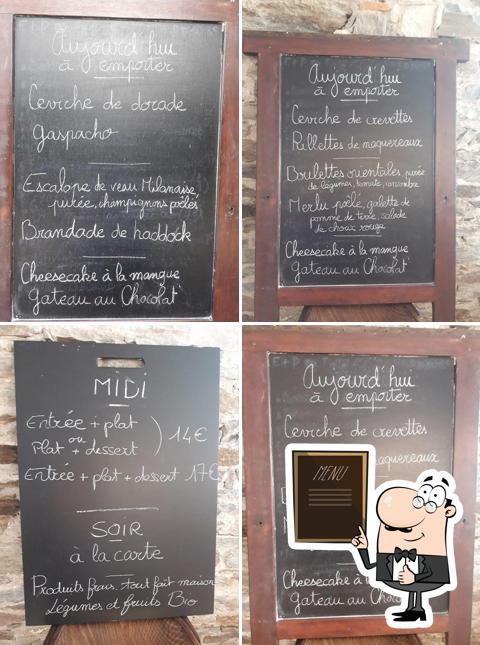 Aujourd'hui
à emporter
Ceviche de dorade
gaspacho
Escalope de veau Milanaise,
purée, champignons poêlés
Brandade de haddock
Cheesecake à la mangue
Gateau au Chocolat
Aujourd'hui
à emporter
Ceviche de crevettes
Rillettes de maquereaux
Boulettes orientales, purée
de légumes, tomate, concombre
Merlu poêlé, galette de
pomme de terre, salade
de choux rouge
Cheesecake à la mangue
Gateau au Chocolat
MIDI
Entrée + plat
ou
Plat + dessert
) 14€
Entrée + plat + dessert 17€
SOIR
à la carte
Produits frais, tout fait maison
Légumes et fruits Bio
Aujourd'hui
à emporter
Ceviche de crevettes
aquereaux
MENU
Cheesecake à
Gateau au Choc